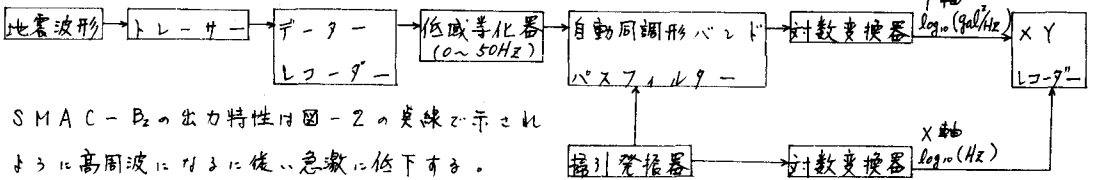 地震波形
トレーサー
データー
レコーダー
低域等化器
(0～50Hz)
自動同調形バンド
パスフィルター
対数変換器
log₁₀(gal²/Hz)
XY
レコーダー
掃引発振器
対数変換器
X軸
log₁₀(Hz)
SMAC-B₂の出力特性は図-2の実線で示され
ように高周波になるに従い急激に低下する。